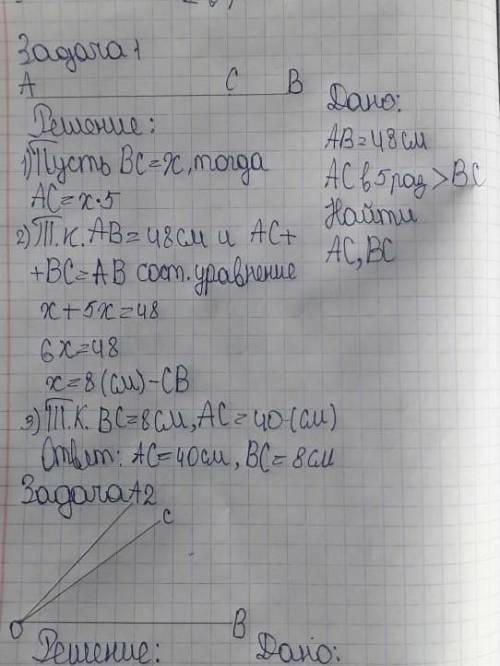 Задача 1
A C B
Дано:
AB=48см
AC в 5 раз > BC
Найти
AC, BC
Решение:
1) Пусть BC=x, тогда
AC=x·5
2) Т.К. AB=48см и AC+
+BC=AB сост. уравнение
x+5x=48
6x=48
x=8(см)-CB
3) Т.К. BC=8см, AC=40(см)
Ответ: AC=40см, BC=8см
Задача 2
A
C
O B
Решение: Дано: